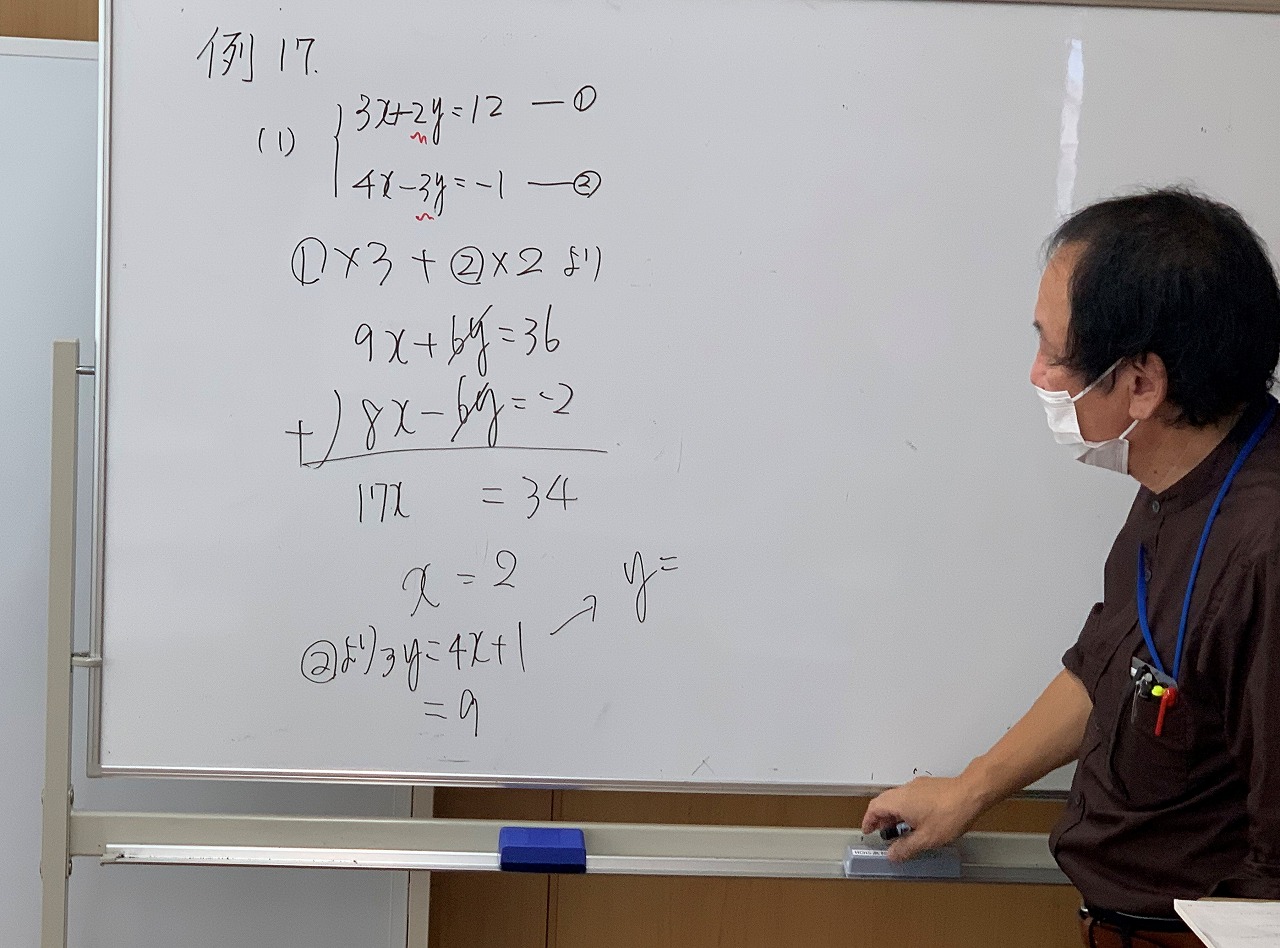 例 17.
(1) { 3x+2y=12 — ①
4x-3y=-1 — ②
①×3 + ②×2 より
9x+6y=36
+) 8x-6y=-2
17x = 34
x = 2
②より3y=4x+1 → y=
= 9